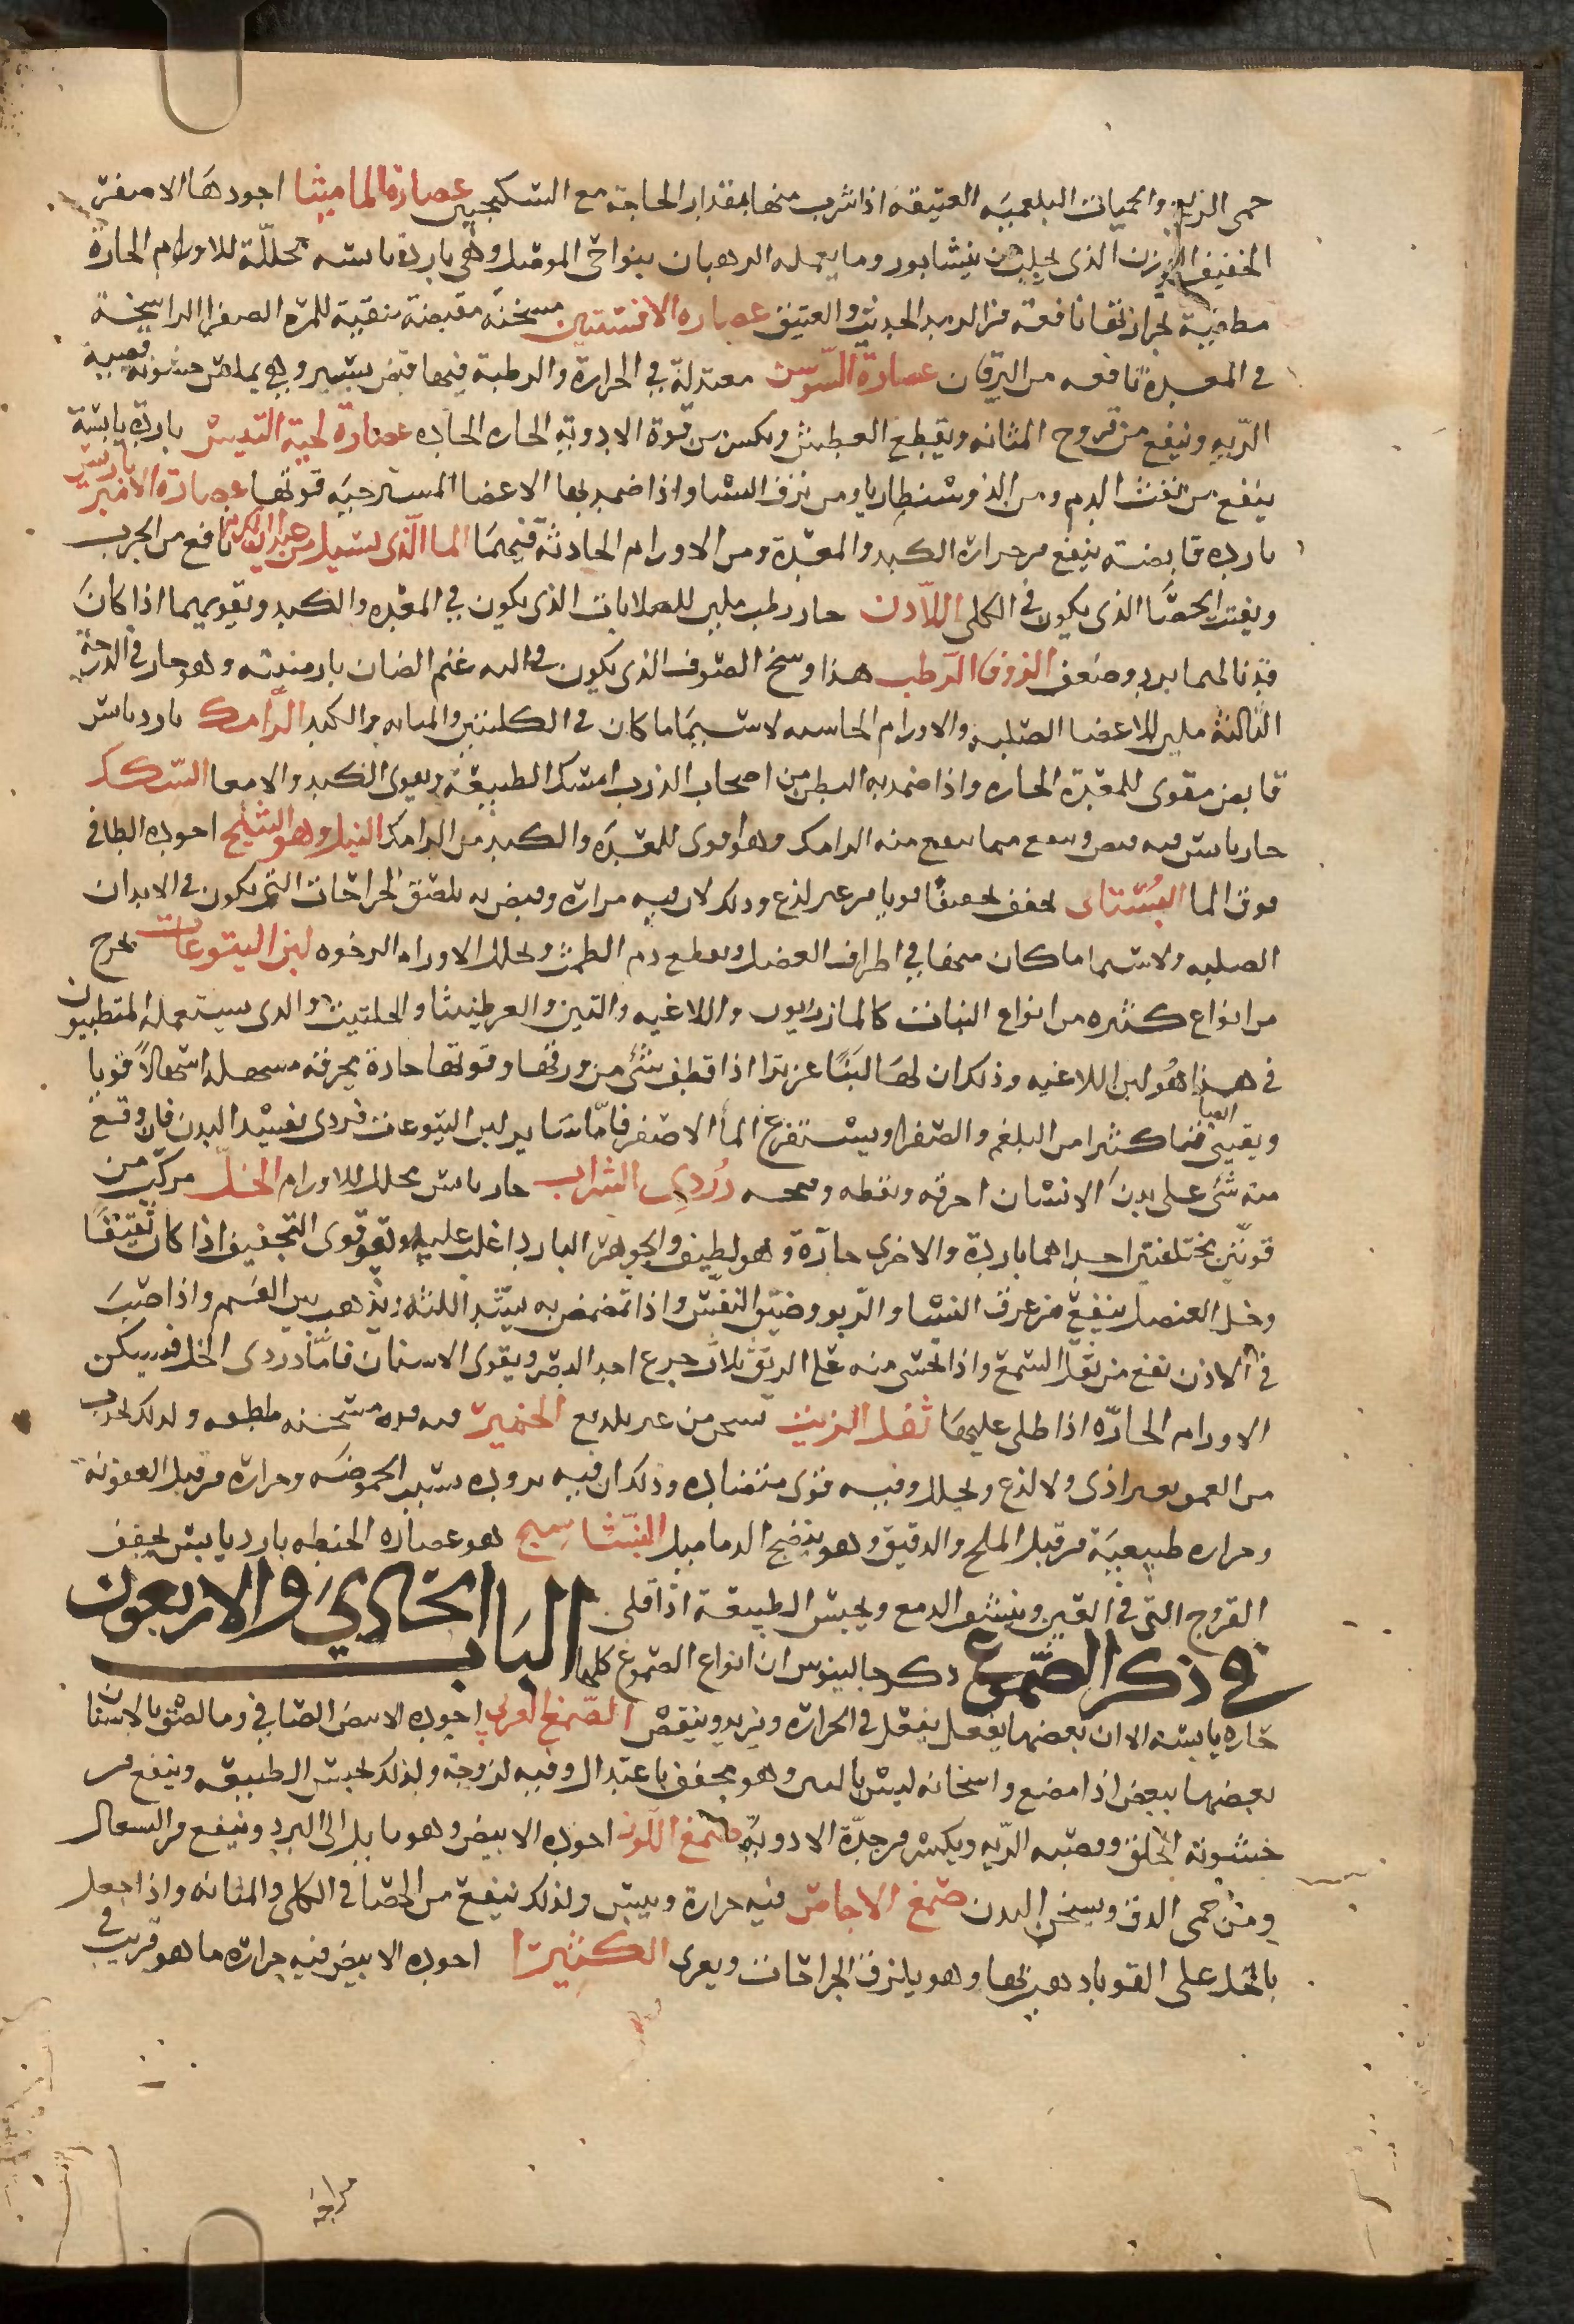 حمى الربع والحميات البلغميه العتيقة اذا شرب منها بمقدار الحاجة مع السكنجبين عصارة الماميثا اجودها الاصفر
الخفيف الوزن الذى يجلب من نيشابور وما يعمله الرهبان بنواحى الموصل وهى باردة يابسه محللّة للاورام الحارة
مطفيه لحرارتها نافعة من الرمد الحديث والعتيق عصاره الافسنتين مسخنه مقبضة منقية للمره الصفرا الراسخة
فى المعدة نافعه من اليرقان عصارة السّوس معتدلة فى الحرارة والرطبة فيها قبض يسير وهى يملس خشونة قصبة
الرّيه وينفع من قروح المثانه ويقطع العطش ويكسر من قوة الادوية الحاره الحاده عصارة لحية التيس باردة يابسة
ينفع من نفث الدم ومن الذوسنطاريا ومن نزف النسا واذا ضمد بها الاعضا المسترخيه قوتها عصارة الامبرباريس
بارده قابضة ينفع من حرارة الكبد والمعدة ومن الاورام الحادثة فيهما الما الّذى يسيل من عيدان الكرم نافع من الجرب
ويفتت الحصَا الذى يكون فى الكلى اللاّدن حار رطب ملين للصلابات الذى يكون فى المعده والكبد ويقويهما اذا كان
قد نالهما برد وضعف الزوفا الرّطب هذا وسخ الصّوف الذى يكون فى اليه غنم الضان بارمنيه وهو حار فى الدرجة
الثالثة ملين للاعضا الصلبه والاورام الجاسيه لا سيمَا ما كان فى الكليتين والمثانه والكبد الرّامك بارد يابس
قابض مقوى للمعدة الحاره واذا ضمد به البطن من اصحاب الذرب امسك الطبيعة ويقوى الكبد والامعا السّك
حار يابس فيه قبض وينفع مما ينفع منه الرامك وهو اقوى للمعدَه والكبد من الرامك النيل وهو النيلج اجوده الطافى
فوق الما البُستانى يجفف تجفيفا قويا من غير لذع وذلك لان فيه مراره وقبض به يلصق الجراحات التى يكون فى الابدان
الصلبه ولا سيما ما كان منها فى اطراف العضل ويقطع دم الطمث ويحلل الاورام الرخوه لبن اليتوعات يخرج
من انواع كثيره من انواع النبات كالمازريون واللاغيه والتين والعرطنيثا والحلتيت والذى يستعمله المتطببون
فى هذا هُو لبن اللاغيه وذلك ان لهَا لبَنًا غزيرا اذا قطف شى من ورقها وقوتها حادة محرقه مسهله اسهالاً قويا
ويقيئ ايضا قيئا كثيرا من البلغم والصفرا ويستفرغ الما الاصفر فامّا سَاير لبن اليتوعات فردى يفسد البدن فان وقع
منه شى على بدن الانسان احرقه ونفطه دُرْدِى الشراب حار يابس محلل للاورام الخلّ مركّب من
قوتين مختلفتين احداهما باردة والاخرى حارّة وهو لطيف والجوهر البارد اغلب عليه وهو قوى التجفيف اذا كان ثقيفًا
وخل العنصل ينفع من عرق النسا والرّبو وضيّق النفَس واذا تمضمض به يشد اللثه ويذهب نتن الفَم واذا صُبَ
فى الاذن نفع من ثقل السّمع واذا تحسى منه على الريق ثلاث جرع احد البصر ويقوى الاسنان فامّا دردى الخل فيسكن
الاورام الحارّه اذا طلى عليها ثفل الزيت يسخن من غير تلذيع الخمير فيه قوه مسخنه ملطفه ولذلك يجذب
من العمق بغير اذى ولا لذع ويحلل وفيه قوى متضاده وذلك ان فيه بروده بسبب الحموضَه وحرارة من قبل العفونه
وحراره طبيعيَة من قبل الملح والدقيق وهو ينضج الدماميل النّشاستج هو عصاره الحنطه بارد يابس يجفف
القروح التى فى العين وينشف الدمع ويحبس الطبيعة اذا قلى البَاب الحَادِيَ والاربعون
فى ذكر الصّموغ ذكر جالينوس ان انواع الصموغ كلها
حاره يابسه الا ان بعضها يفضل بعضا فى الحرارة ويزيد وينقص الصّمغ العربى اجوده الابيض الصّافى وما لصق بالاسنان
بعضها ببعض اذا مضغ واسخانه ليس بالبين وهو مجفف باعتدال وفيه لزوجة ولذلك يحبس الطبيعه وينفع من
خشونة الحلق وقصبه الرّيه ويكسر من حدّة الادوية صمغ اللّوز اجوده الابيض وهو مايل الى البرد وينفع من السعال
ومن حمى الدق ويسخن البدن صمغ الاجاص فيه حرارة ويبس ولذلك ينفع من الحصَا فى الكلى والمثانه واذا جعل
بالخل على القوبا ذهب بها وهو يلزق الجراحات ويعرى الكثيرا اجوده الابيض فيه حرارة ما هو قريب فى